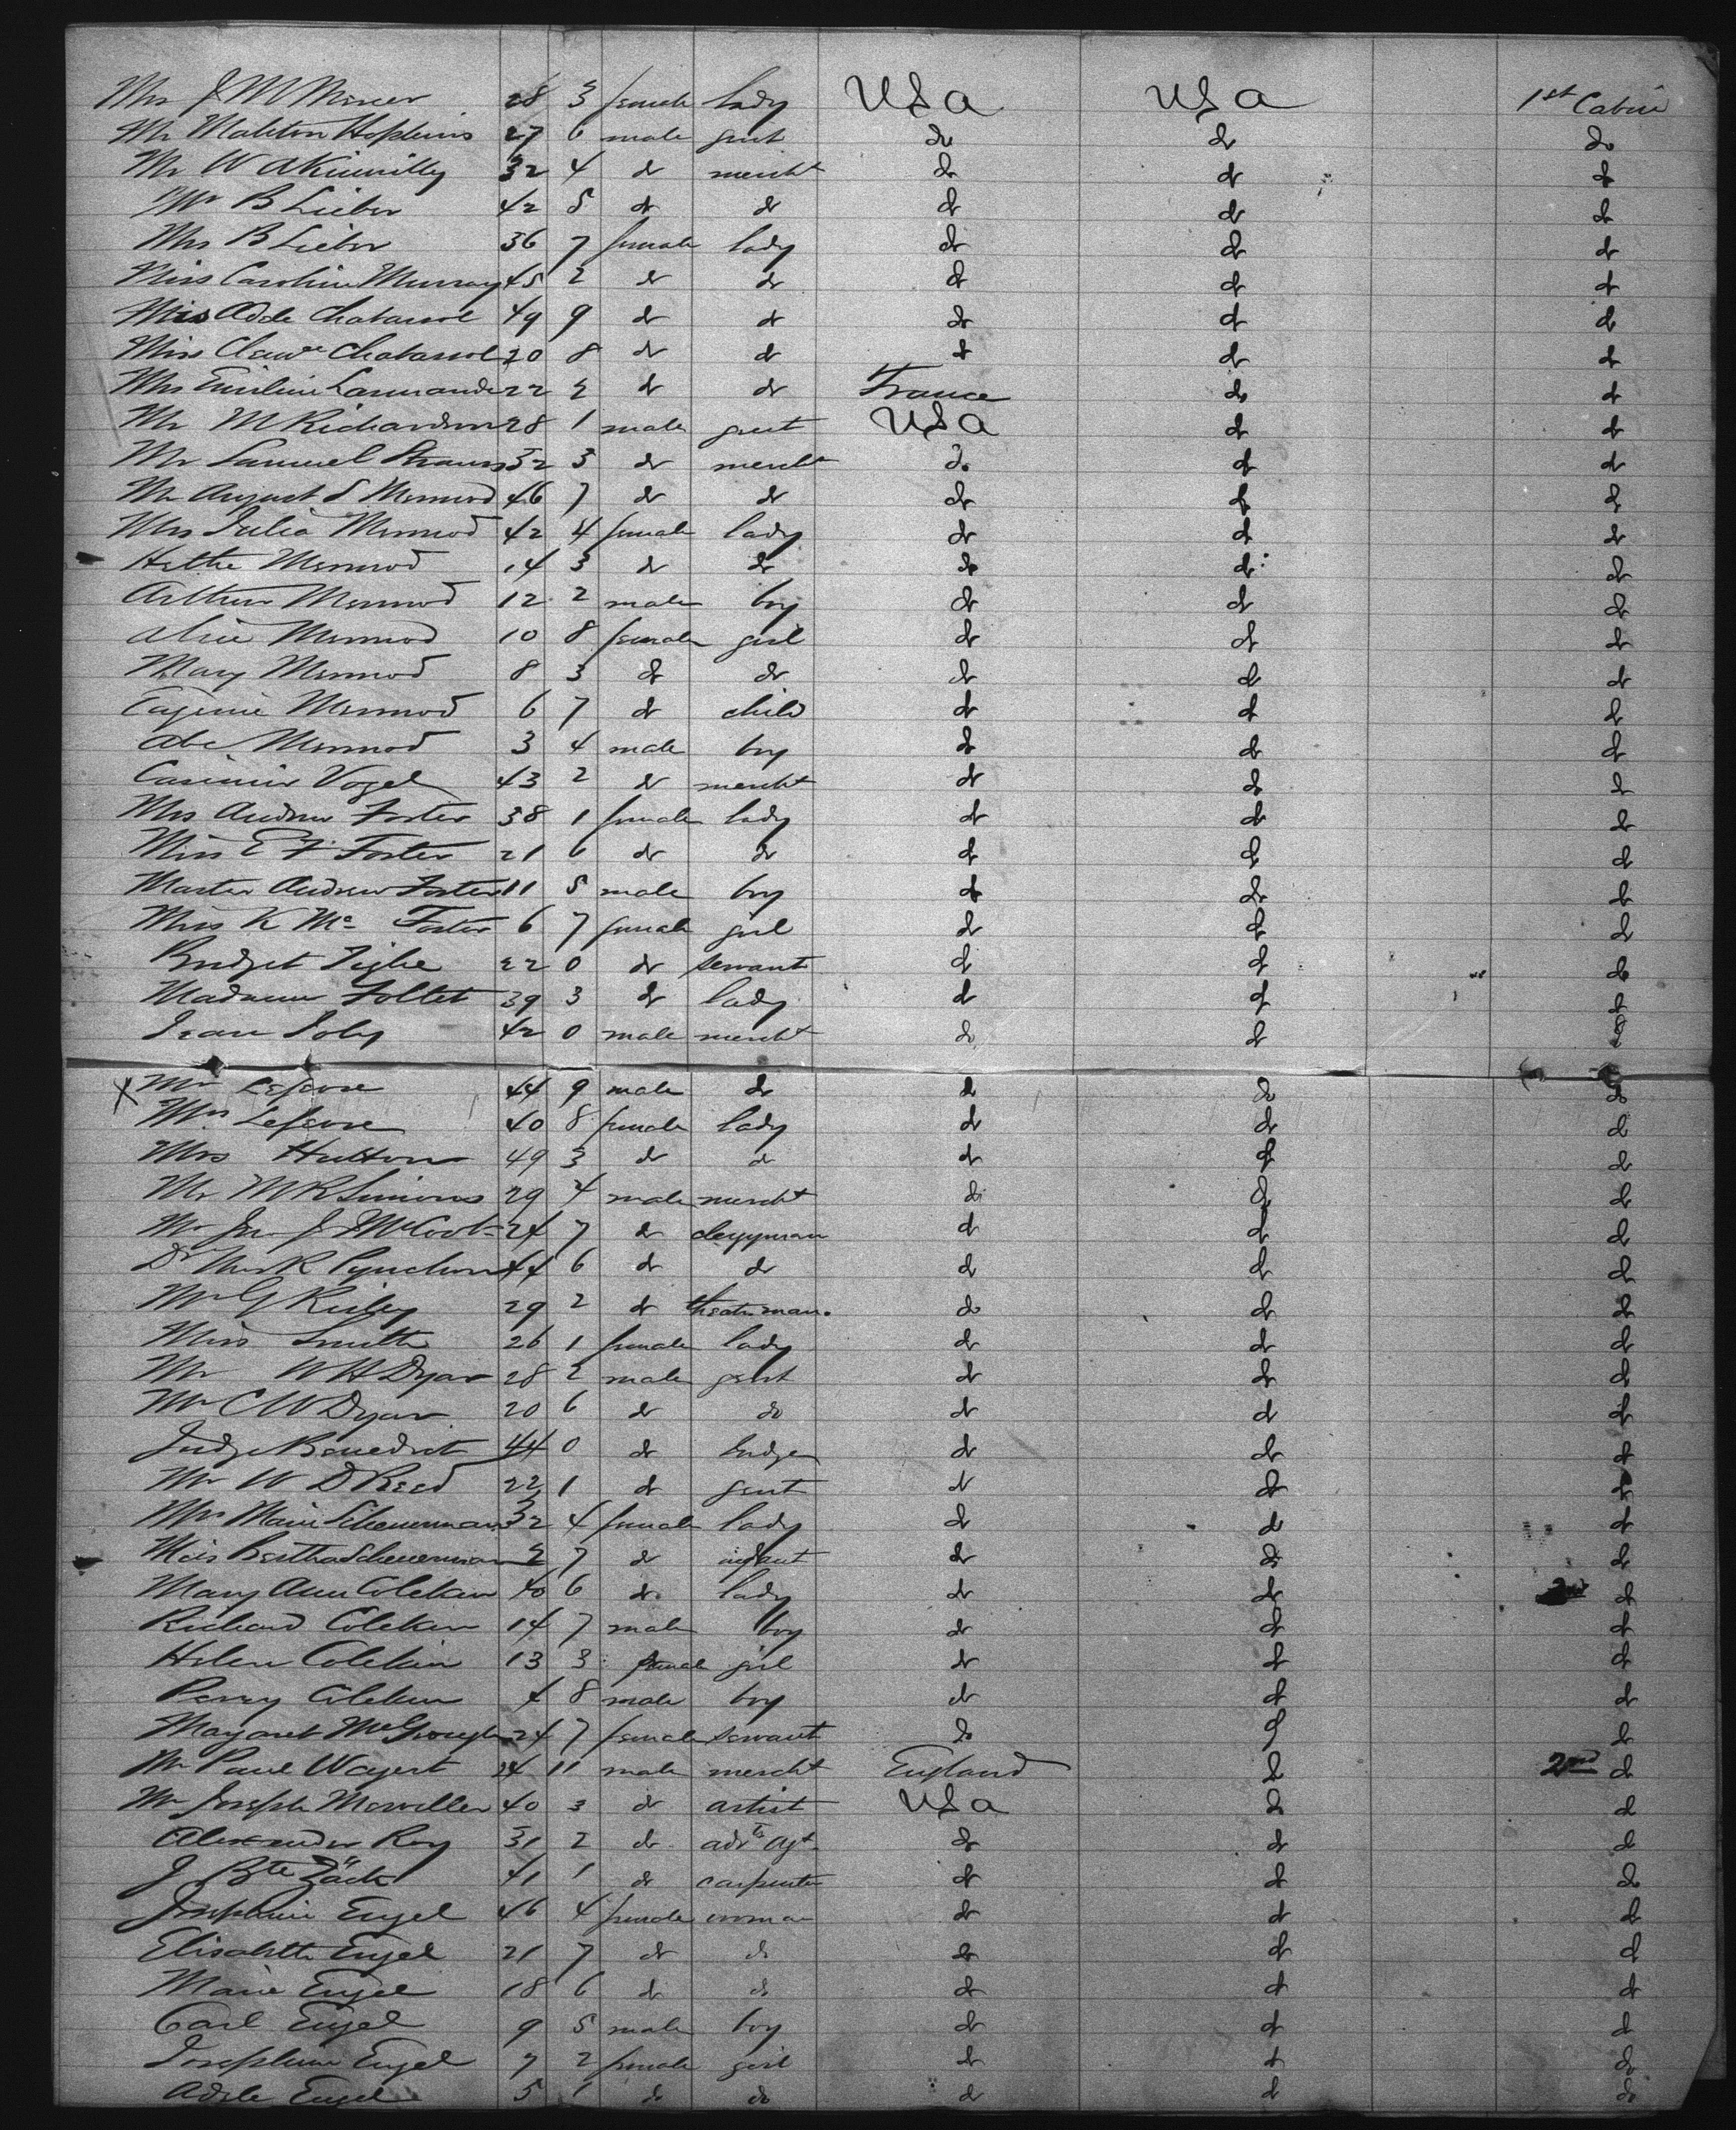 Mrs J M Mercer 28 3 female lady USA USA 1st Cabin
Mr Mahlton Hopkins 27 6 male gent do do do
Mr W A 32 4 do mercht do do do
Mr B Lieber 42 5 do do do do do
Mrs B Lieber 36 7 female lady do do do
Miss Caroline Murray 45 2 do do do do do
Miss Adele Chabassol 49 9 do do do do do
Miss Chabassol 20 8 do do do do do
Mrs Emiline 22 2 do do France do do
Mr M Richardson 28 1 male gent USA do do
Mr Samuel Strauss 32 3 do mercht do do do
Mr August S Mermod 46 7 do do do do do
Mrs Julia Mermod 42 4 female lady do do do
Hettie Mermod 14 3 do do do do do
Arthur Mermod 12 2 male boy do do do
Alice Mermod 10 8 female girl do do do
Mary Mermod 8 3 do do do do do
Eugenie Mermod 6 7 do child do do do
Abe Mermod 3 4 male boy do do do
Casimir Vogel 43 2 do mercht do do do
Mrs Andrew Foster 38 1 female lady do do do
Miss E F Foster 21 6 do do do do do
Master Andrew Foster 11 5 male boy do do do
Miss K Mc Foster 6 7 female girl do do do
Bridget Tighe 22 0 do servant do do do
Madame Follet 39 3 do lady do do do
Jean Joly 42 0 male mercht do do do
X Mr Lefevre 44 9 male do do do do
Mrs Lefevre 40 8 female lady do do do
Mrs Hutton 49 3 do do do do do
Mr M R Simons 29 4 male mercht do do do
Mr Jno J McCook 24 7 do clergyman do do do
Dr Thos R Pynchon 44 6 do do do do do
Mr G Risley 29 2 do theatr. man. do do do
Miss Smith 26 1 female lady do do do
Mr W H Dyar 28 2 male gent do do do
Mr C W Dyar 20 6 do do do do do
Judge Benedict 44 0 do Judge do do do
Mr W D Reed 22 1 do gent do do do
Mrs Marie Scheuerman 32 4 female lady do do do
Miss Bertha Scheuerman 2 7 do infant do do do
Mary Ann Colekin 40 6 do lady do do 2nd do
Richard Colekin 14 7 male boy do do do
Helen Colekin 13 3 female girl do do do
Percy Colekin 4 8 male boy do do do
Margaret 24 7 female servant do do do
Mr Paul Wayert 24 11 male mercht England do 2nd do
Mr Joseph 40 3 do artist USA do do
Alexander Roy 31 2 do advts agt. do do do
J Bte Zäch 41 1 do carpenter do do do
Josephine Engel 46 4 female woman do do do
Elisabeth Engel 21 7 do do do do do
Marie Engel 18 6 do do do do do
Carl Engel 9 5 male boy do do do
Josephine Engel 7 2 female girl do do do
Adele Engel 5 1 do do do do do